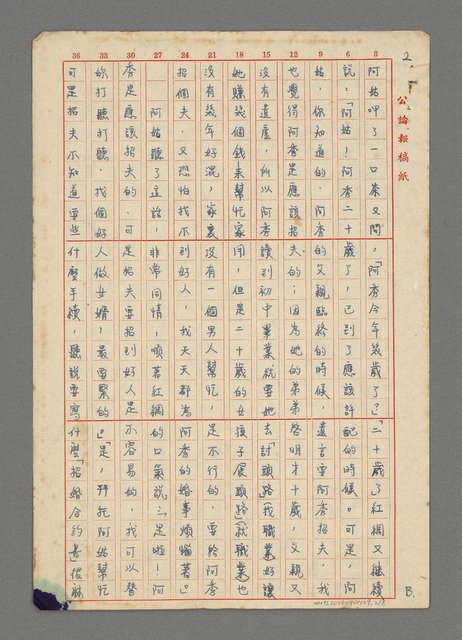 2
3 6 9 12 15 18 21 24 27 30 33 36
公論報稿紙
阿姑呷了一口茶又問：「阿秀今年幾歲了？」「二十歲了」紅綢又繼續
說：「阿姑！阿秀二十歲了，已到了應該許配的時候。可是，阿
姑，你知道的，阿秀的父親臨終的時候，遺言要阿秀招夫，我
也覺得阿秀是應該招夫的；因為她的弟弟啓明才十歲，父親又
沒有遺產，所以阿秀讀到初中畢業就要她去「討頭路」（找職業）好讓
她賺幾個錢來幫忙家用，但是二十歲的女孩子「展頭路」（就職業）也
沒有幾年好混，家裏沒有一個男人幫忙，是不行的，要給阿秀
招個夫，又恐怕找不到好人，我天天都為阿秀的婚事煩惱著。」
阿姑聽了這話，非常同情，順著紅綢的口氣說：「是啦！阿
秀是應該招夫的，可是招夫要招到好人是不容易的，我可以替
妳打聽打聽，找個好人做女婿，最要緊的。」「是，拜托阿姑幫忙
可是招夫不知道要些什麼手續，聽說要寫什麼「招婚合約書」很麻
B.